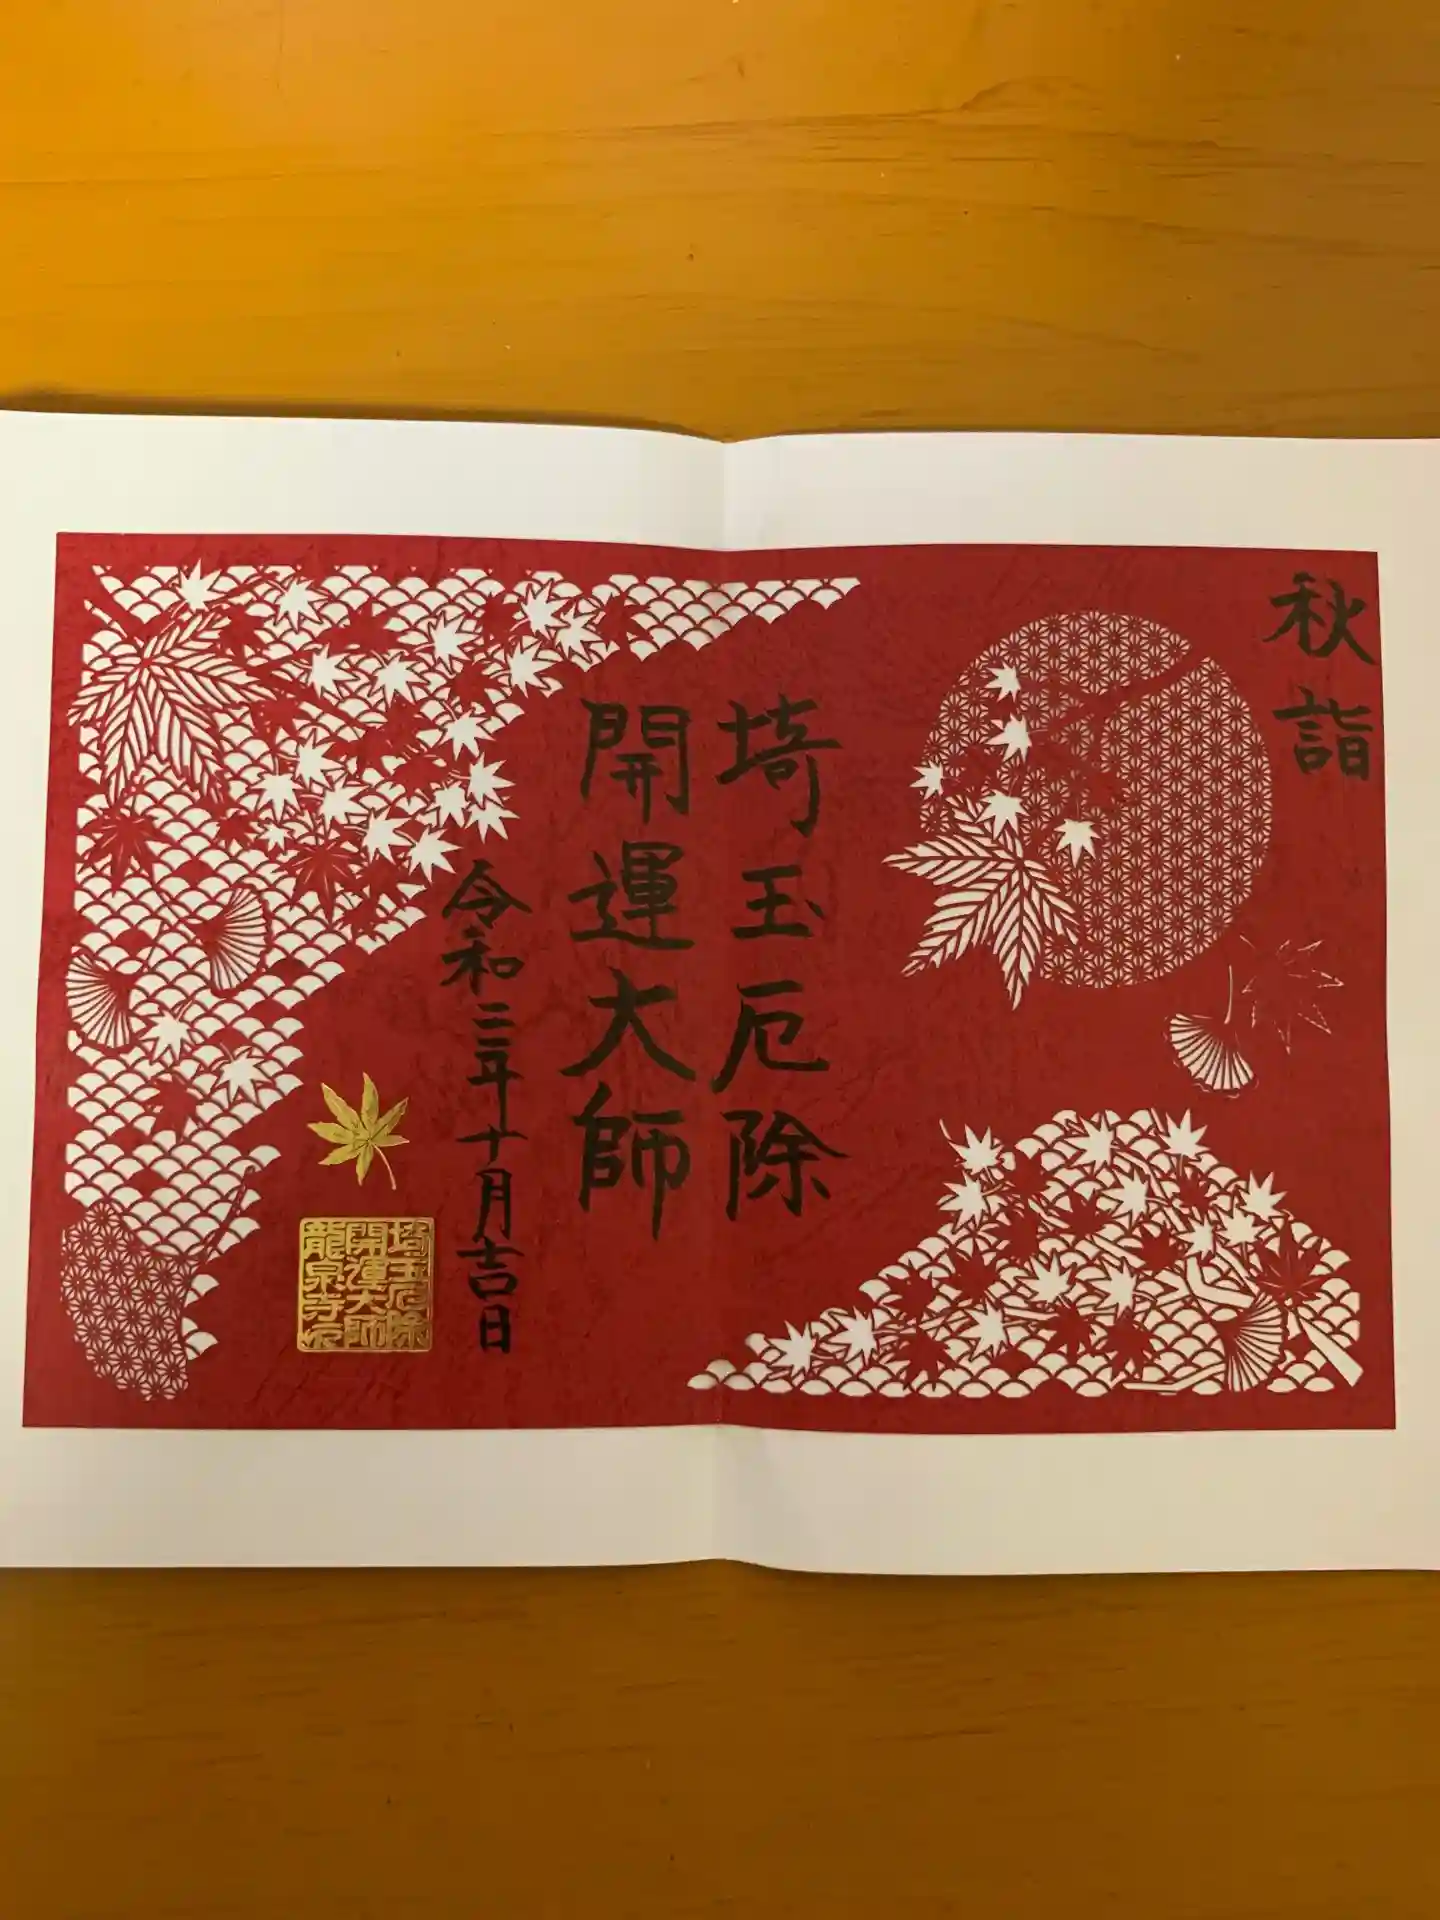 秋詣
埼玉厄除
開運大師
令和三年十月吉日
埼玉厄除
開運大師
龍泉寺印